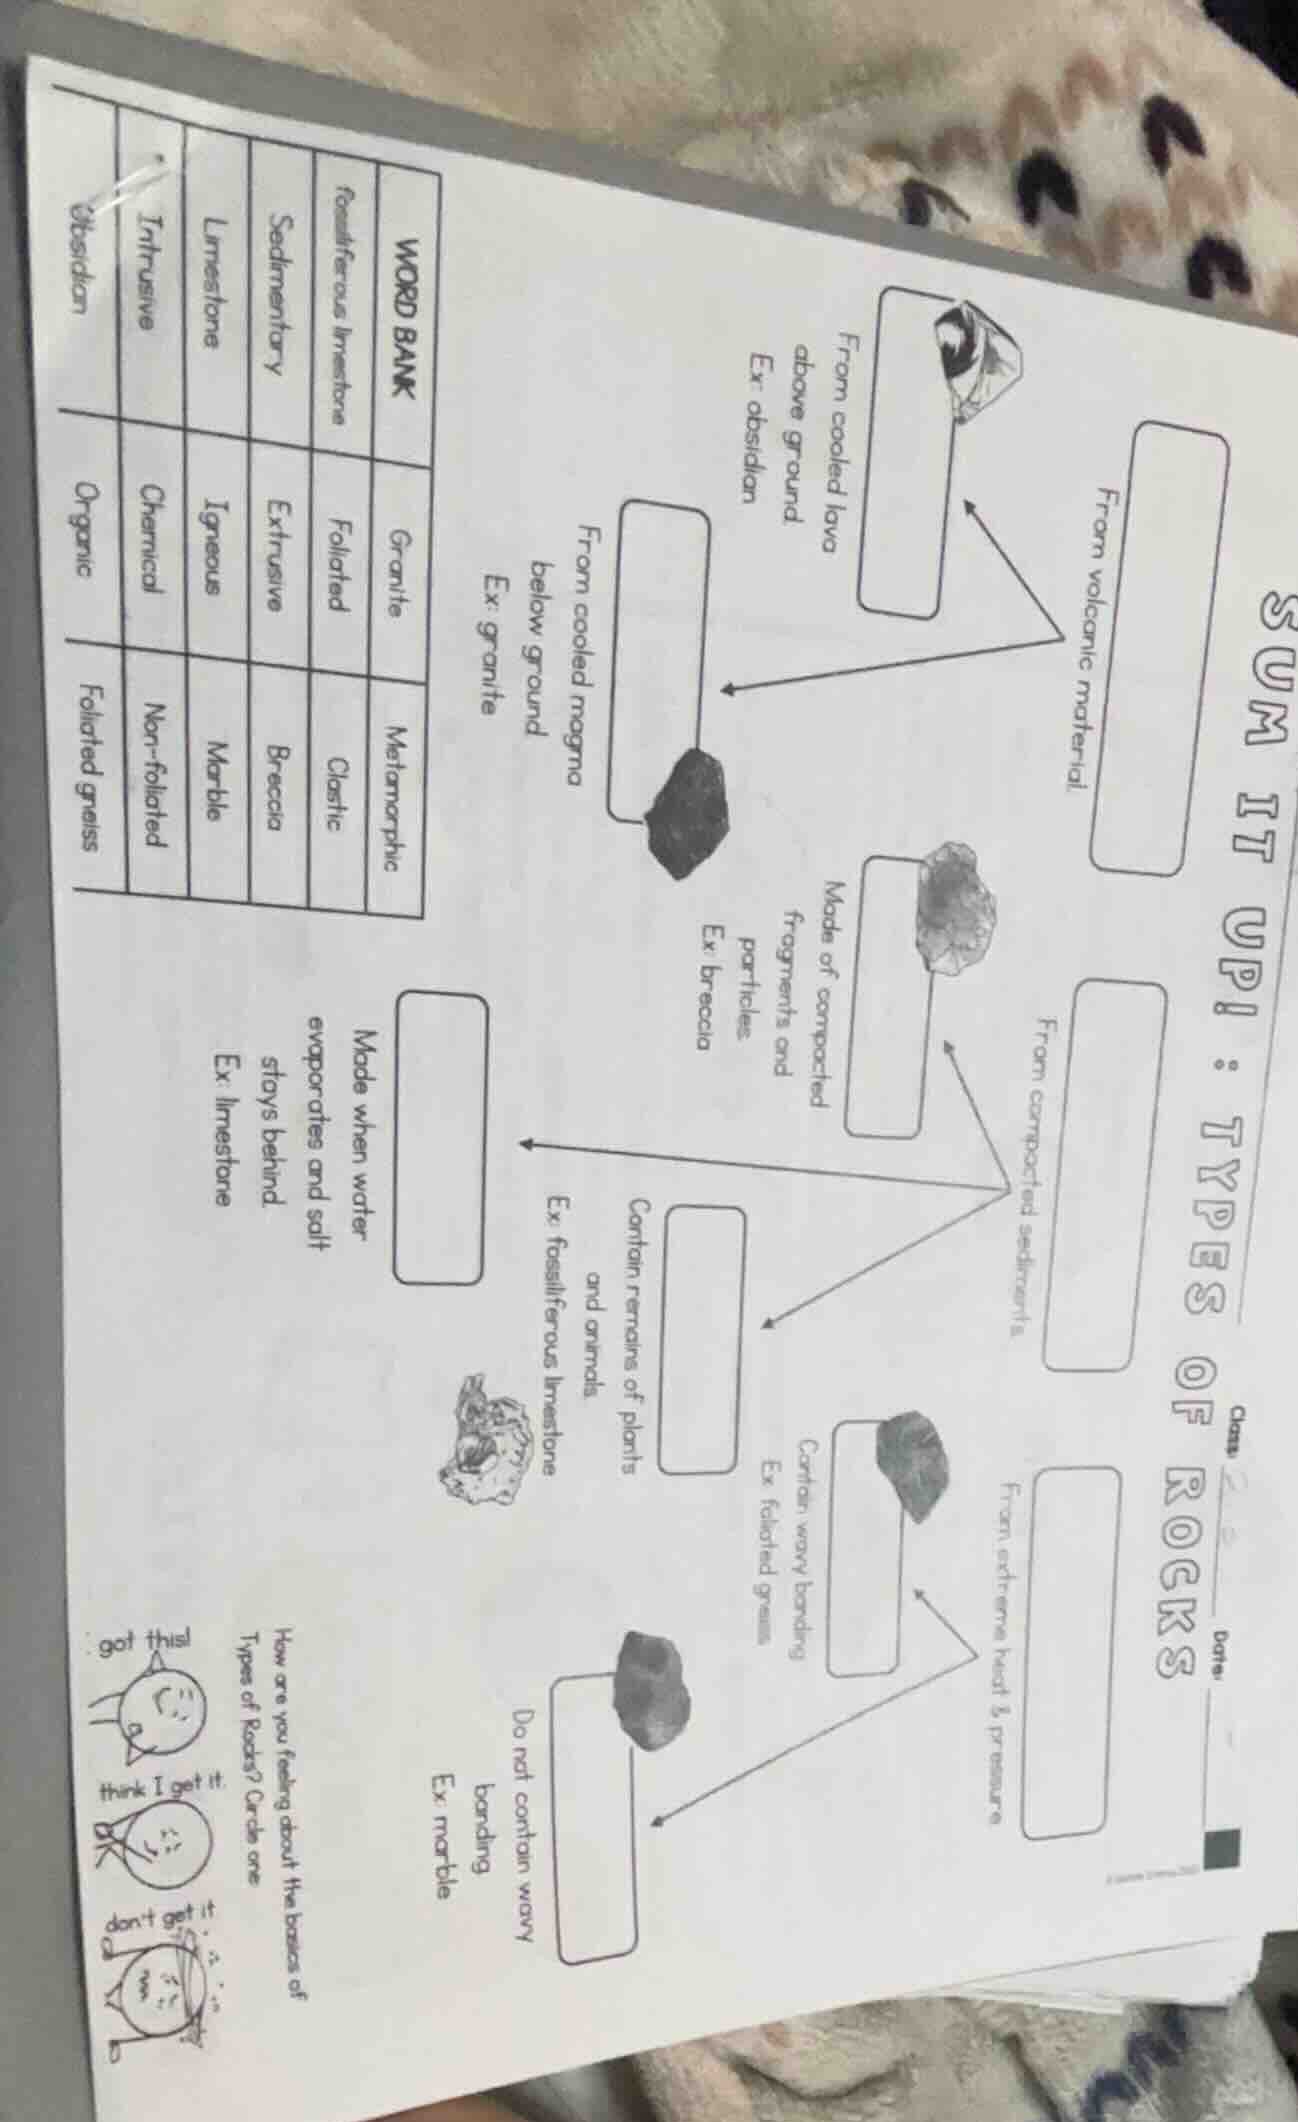 Class:
Date:
SUM IT UP! : TYPES OF ROCKS
From volcanic material.
From compacted sediments.
From extreme heat & pressure
From cooled lava
above ground.
Ex: obsidian
From cooled magma
below ground.
Ex: granite
Made of compacted
fragments and
particles.
Ex: breccia
Contain remains of plants
and animals.
Ex: fossiliferous limestone
Made when water
evaporates and salt
stays behind.
Ex: limestone
Contain wavy banding
Ex: foliated gneiss
Do not contain wavy
banding
Ex: marble
WORD BANK Granite Metamorphic
fossiliferous limestone Foliated Clastic
Sedimentary Extrusive Breccia
Limestone Igneous Marble
Intrusive Chemical Non-foliated
Obsidian Organic Foliated gneiss
How are you feeling about the basics of
Types of Rocks? Circle one
got this!
think I get it
don't get it